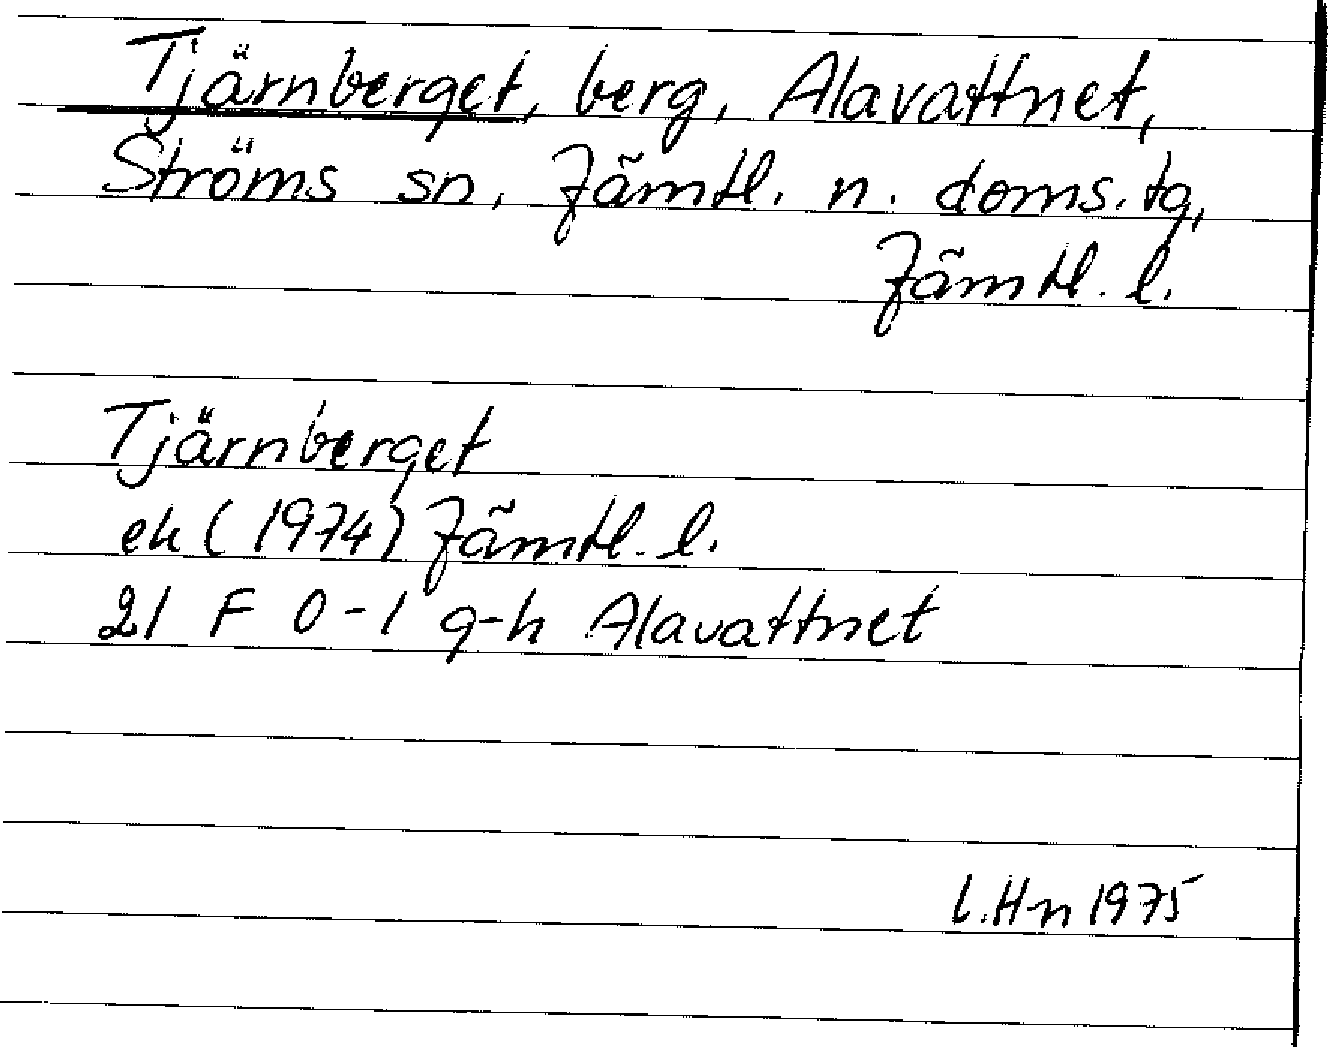 Tjärnberget, berg, Alavattnet,
Ströms sn, Jämtl. n. doms.tg,
Jämtl. l.
Tjärnberget
ek (1974) Jämtl. l.
21 F 0-1 g-h Alavattnet
l.Hn 1975